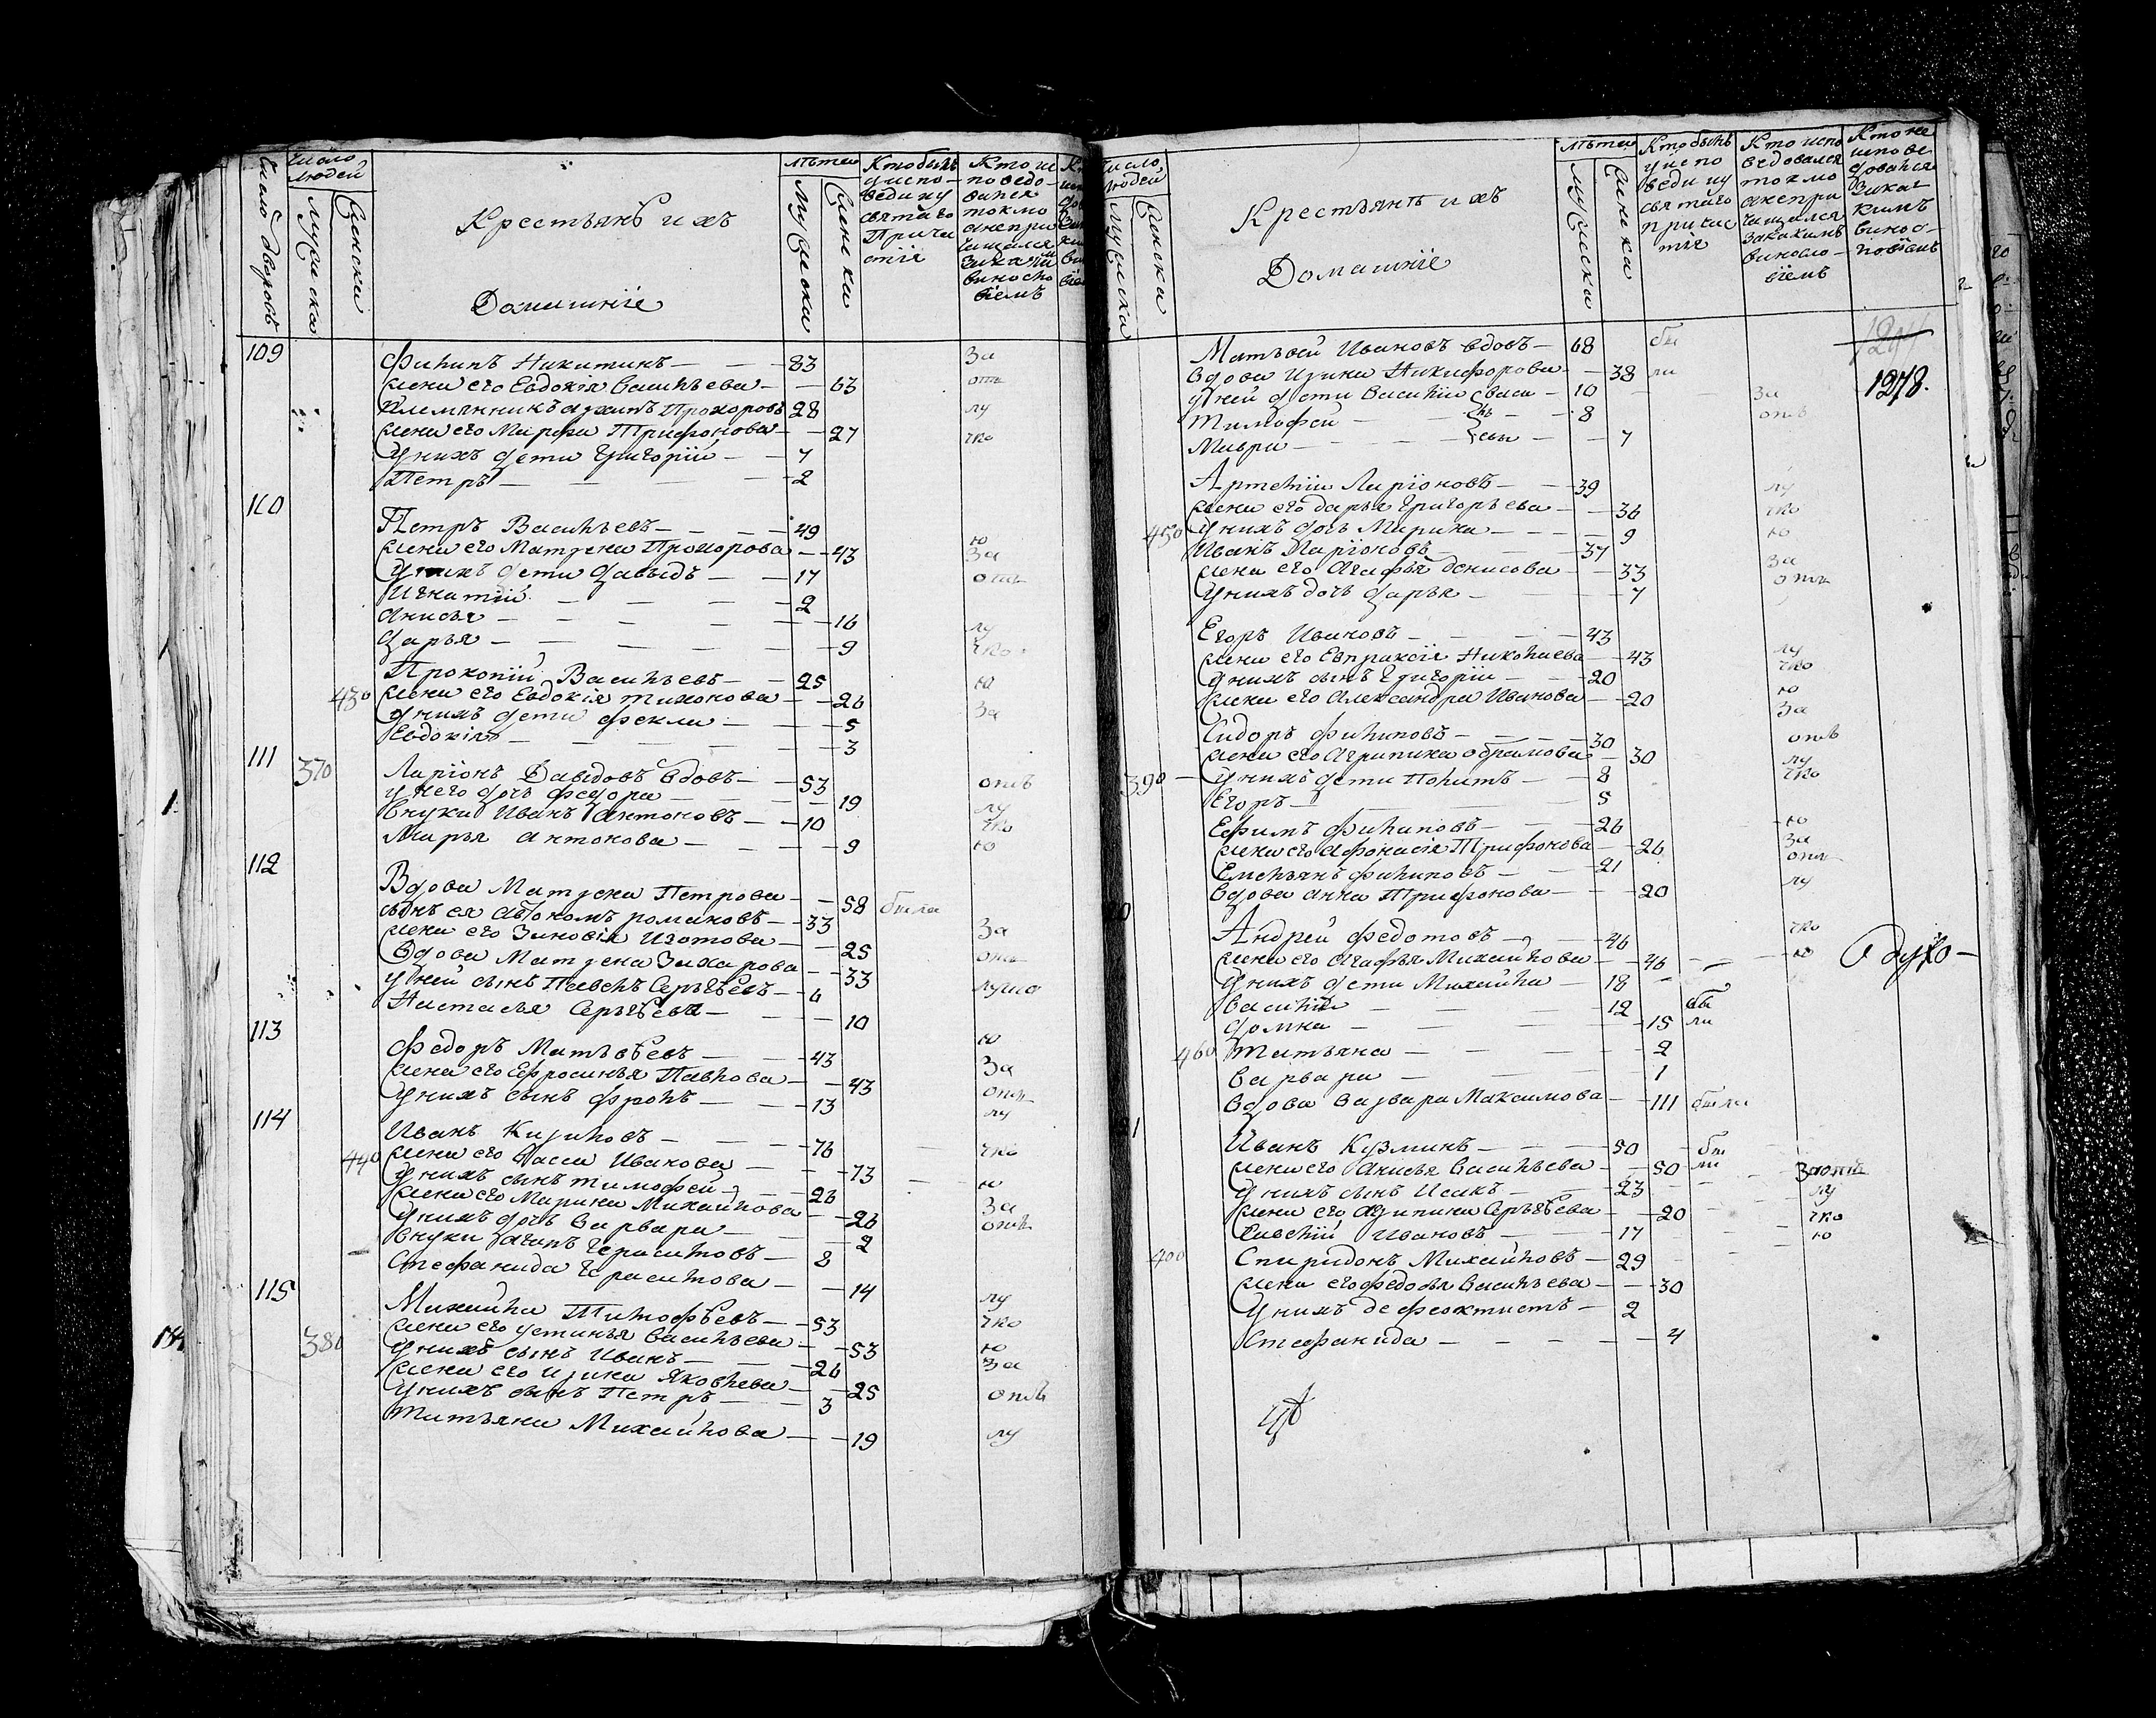 Число дворовъ
Число людей
Мужеска
Женска
Крестьянѣ и ихъ
Домашнїе
лѣтеи
Мужеска
Женска
Кто былъ у исповеди и у святаго Причастїя
Кто исповедовался токмо а не причащался
109
Филипъ Никитинъ — 83
жена его Евдокїя Васильева — 63
Племянникъ Прохоровъ 28
жена его Марфа Трифонова — 27
У нихъ дети Григорїй — 7
Петръ — 2
110
Петръ Васильевъ — 49
жена его Матрена Прохорова — 43
У нихъ дети Давыдъ — 17
Игнатїй — 2
Анисья — 16
Дарья — 9
Прокопїй Васильевъ — 25
430 жена его Евдокїя Тихонова — 26
У нихъ дети Фекла — 5
Евдокїя — 3
111 370
Ларїонъ Давыдовъ вдовъ — 53
у него дочь Федора — 19
Внуки Иванъ Антоновъ — 10
Марья Антонова — 9
112
Вдова Матрена Петрова — 58 была
сынъ ея Автономъ Романовъ — 33
жена его Зиновїя Изотова — 25
Вдова Матрена Захарова — 33
у ней сынъ Павелъ Сергѣевъ — 6
Настасья Сергѣева — 10
113
Федоръ Матвѣевъ — 43
жена его Ефросинья Павлова — 43
У нихъ сынъ Фролъ — 13
114
Иванъ Кириловъ — 76
440 жена его Васса Иванова — 73
У нихъ сынъ Тимофей — 26
жена его Марина Михайлова — 26
У нихъ дочь Варвара — 2
Внуки Агапъ Герасимовъ — 8
Стефанида Герасимова — 14
115
Михайла Тимофѣевъ — 53
жена его Устинья Васильева — 53
380 У нихъ сынъ Иванъ — 26
жена его Ирина Яковлева — 25
У нихъ сынъ Петръ — 3
Татьяна Михайлова — 19
Число людей
Мужеска
Женска
Крестьянѣ и ихъ
Домашнїе
лѣтеи
Мужеска
Женска
Кто былъ у исповеди и у святаго причастїя
Кто исповедовался токмо а не причащался и за какимъ винословїемъ
Кто не исповедовался и за какимъ винословїемъ
1278.
Матвѣй Ивановъ вдовъ — 68 бы
Вдова Ирина Никифорова — 38 ли
у ней дети Василїй 10
Тимофей — 8
Мавра — 7
Артемїй Ларїоновъ — 39
жена его Дарья Григорьева — 36
450 У нихъ дочь Мариха — 9
Иванъ Ларїоновъ — 37
жена его Агафья Денисова — 33
У нихъ дочь Дарья — 7
Егоръ Ивановъ — 43
жена его Евпраксїя Николаева — 43
У нихъ сынъ Григорїй — 20
жена его Александра Иванова — 20
Сидоръ Филиповъ — 30
жена его Агрипина Абрамова — 30
390 — У нихъ дети Политъ — 8
Егоръ — 5
Ефимъ Филиповъ — 26
жена его Афонасїя Трифонова — 26
Емельянъ Филиповъ — 21
Вдова Анна Трифонова — 20
Андрей Федотовъ — 46
жена его Агафья Михайлова — 46
У нихъ дети Михайла — 18
Василїй — 12 бы
Домна — 15 ли
460 Татьяна — 2
Варвара — 1
Вдова Варвара Максимова — 111 была
Иванъ Кузминъ — 50 бы
жена его Анисья Васильева — 50 ли
У нихъ сынъ Исакъ — 23
жена его Сергѣева — 20
Ивановъ — 17
400 Спиридонъ Михайловъ — 29
жена его Федосья Васильева — 30
У нихъ де Феоктистъ — 2
Стефанида — 4